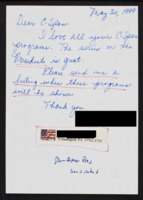 May 30, 1999
Dear C-Span
I love all your C-Span
programs. The series on the
Presidents is great.
Please send me a
listing when these programs
will be shown.
Thank you